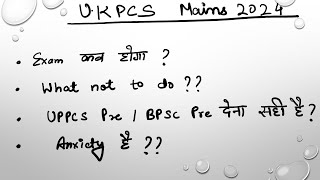 UKPCS Mains 2024
• Exam कब होगा ?
• What not to do ??
• UPPCS Pre / BPSC Pre देना सही है ?
• Anxiety है ??